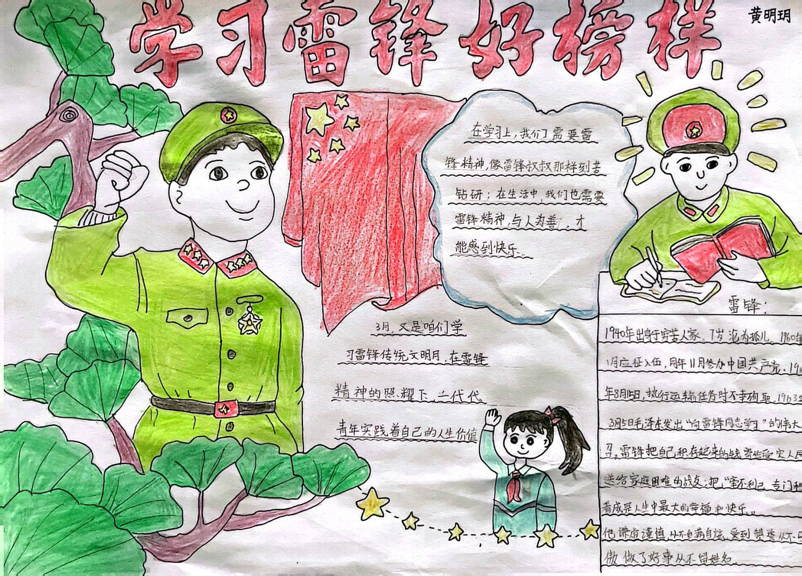 学习雷锋好榜样
黄明玥
在学习上,我们需要雷
锋精神,像雷锋叔叔那样刻苦
钻研;在生活中,我们也需要
雷锋精神,与人为善,才
能感到快乐。
3月,又是咱们学
习雷锋传统文明月,在雷锋
精神的照耀下,一代代
青年实践着自己的人生价值
雷锋:
1940年出身于穷苦人家、7岁沦为孤儿、1960年
1月应征入伍,同年11月参加中国共产党、196
年8月15日,执行运输任务时不幸殉职,1963
3月5日毛泽东发出“向雷锋同志学习”的伟大
召。雷锋把自己积存起来的钱寄给灾人民
送给家庭困难的战友,把“毫不利己、专门利
看成是人生中最大的幸福和快乐。
他谦虚谨慎,从不自满自夸,受到赞誉从不
傲做了好事从不留姓名。